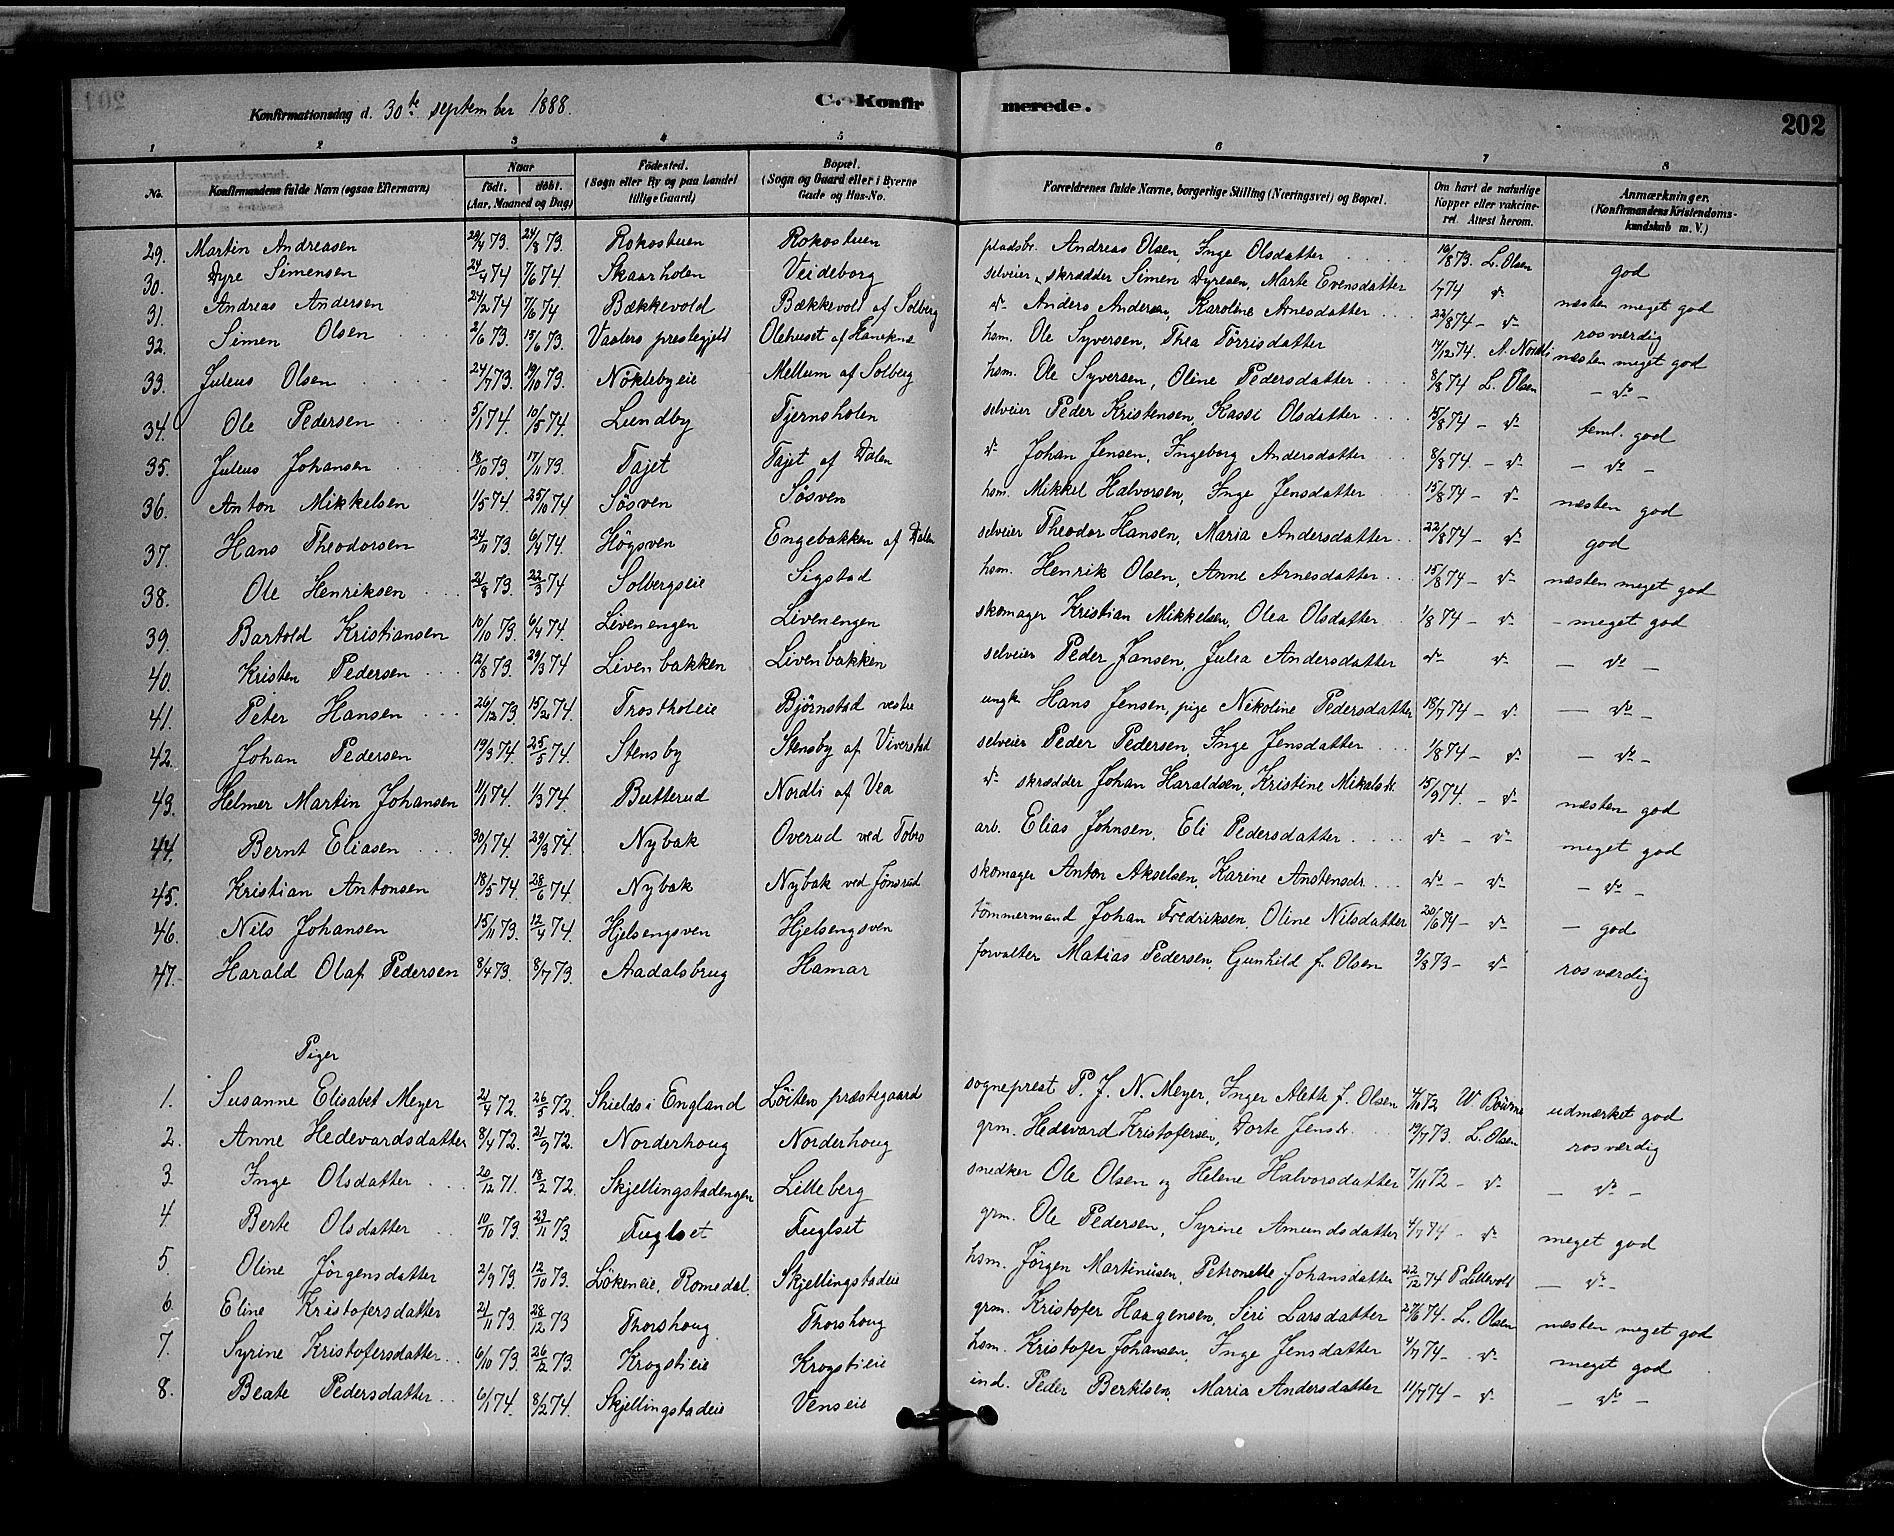 201
Konfirmationsdag d. 30te september 1888.
C. Konfirmerede.
202
1 2 3 4 5 6 7 8
No.
Konfirmandens fulde Navn (ogsaa Efternavn)
Naar født. døbt. (Aar, Maaned og Dag)
Fødested. (Sogn eller By og paa Landet tillige Gaard)
Bopæl. (Sogn og Gaard eller i Byerne Gade og Hus-No.
Forældrenes fulde Navne, borgerlige Stilling (Næringsvei) og Bopæl.
Om havt de naturlige Kopper eller vakcineret. Attest herom.
Anmærkninger. (Konfirmandens Kristendomskundskab m. V.)
29. Martin Andreasen 29/4 73. 24/8 73. Rokostuen Rokostuen pladsbr. Andreas Olsen, Inge Olsdatter 19/8 73. L. Olsen god
30. Dyre Simensen 24/4 74 7/6 74. Skaarholen Veideborg selveier, skrædder Simen Dyresen, Marte Evensdatter 1/7 74 do næsten meget god
31. Andreas Andersen 24/2 74 7/6 74 Bækkevold Bækkevold af Solberg do Anders Andersen, Karoline Arnesdatter 22/8 74 - do rosværdig
32. Simen Olsen 2/6 73. 15/6 73. Vaalers prestegjeld Olehuset af hsm. Ole Syversen, Thea Törrisdatter 17/12 74. A. Nordli næsten meget god
33. Julius Olsen 24/7 73. 19/10 73. Nöklebyeie Mellum af Solberg hsm. Ole Syversen, Oline Pedersdatter 8/8 74 L. Olsen - do -
34. Ole Pedersen 5/1 74. 10/5 74. Lundby Tjernsholen selveier Peder Kristensen, Kassi Olsdatter 15/8 74 - do teml. god
35. Julius Johansen 18/10 73. 17/11 73. Tajet Tajet af Dalen do Johan Jensen, Ingeborg Andersdatter 8/8 74. - do - do -
36. Anton Mikkelsen 1/5 74. 25/10 74. Sösven Sösven hsm. Mikkel Halvorsen, Inge Jensdatter 15/8 74 - do næsten god
37. Hans Theodorsen 24/11 73. 6/4 74. Högsven Engebakken af Dalen selveier Theodor Hansen, Maria Andersdatter 22/8 74 - do god
38. Ole Henriksen 21/8 73. 22/3 74 Solbergseie Sigstad hsm. Henrik Olsen, Anne Arnesdatter 15/8 74 - do næsten meget god
39. Bartold Kristiansen 10/10 73. 6/4 74. Livenengen Livenengen skomager Kristian Mikkelsen, Olea Olsdatter 1/8 74 - do - meget god
40. Kristen Pedersen 12/8 73. 29/3 74 Livenbakken Livenbakken selveier Peder Jansen, Julia Andersdatter do do - do -
41. Peter Hansen 26/12 73. 15/2 74. Trostholeie Björnstad vestre ungk. Hans Jensen, pige Nikoline Pedersdatter 18/7 74 - do - do -
42. Johan Pedersen 19/3 74. 25/5 74. Stensby Stensby af Viverstad selveier Peder Pedersen, Inge Jensdatter 1/8 74 - do - do -
43. Helmer Martin Johansen 11/1 74. 1/3 74. Butterud Nordli af Vea do skrædder Johan Haraldsen, Kristine Mikalsdr. 15/9 74. - do næsten god
44. Bernt Eliasen 30/1 74. 29/3 74. Nybak Overud ved Tobro arb. Elias Johnsen, Eli Pedersdatter do - do meget god
45. Kristian Antonsen 18/5 74. 28/6 74. Nybak Nybak ved Jönsrud skomager Anton Akselsen, Karine Anstensdr. do - do - do -
46. Nils Johansen 15/11 73. 12/4 74. Hjelsengsven Hjelsengsven tömmermand Johan Fredriksen, Oline Nilsdatter 20/6 74 - do - god
47. Harald Olaf Pedersen 8/4 73. 8/7 73. Aadalsbrug Hamar forvalter Matias Pedersen, Gunhild f. Olsen 9/8 73 - do rosværdig
Piger
1. Susanne Elisabet Meyer 21/4 72. 26/5 72. Shields i England Löiten præstegaard sogneprest P. J. N. Meyer, Inger Alette f. Olsen 4/10 72 W Bourne udmærket god
2. Anne Hedevardsdatter 8/4 72. 21/7 72. Norderhoug Norderhoug grm. Hedevard Kristofersen, Dorte Jensdr. 19/7 73. L. Olsen rosværdig
3 Inge Olsdatter 20/12 71. 18/2 72. Skjellingstadengen Lilleberg snedker Ole Olsen og Helene Halvorsdatter 7/11 72 - do - do -
4. Berte Olsdatter 10/10 73. 23/11 73. Fuglset Fuglset grm. Ole Pedersen, Syrine Amundsdatter 4/7 74 - do meget god
5. Oline Jörgensdatter 2/9 73. 12/10 73. Lökeneie, Romedal. Skjellingstadeie hsm. Jörgen Martinusen, Petronelle Johansdatter 22/12 74 P. Lillevold - do -
6. Eline Kristofersdatter 21/11 73. 28/12 73 Thorshoug. Thorshoug grm. Kristofer Haagensen, Siri Larsdatter 27/6 74. L. Olsen næsten meget god
7. Syrine Kristofersdatter 6/10 73. 26/12 73. Krogstieie Krogstieie hsm. Kristofer Johansen, Inge Jensdatter 4/7 74 - do meget god
8. Beate Pedersdatter 6/1 74. 8/2 74. Skjellingstadeie Venseie ind. Peder Bertelsen, Maria Andersdatter 11/7 74 - do - do -